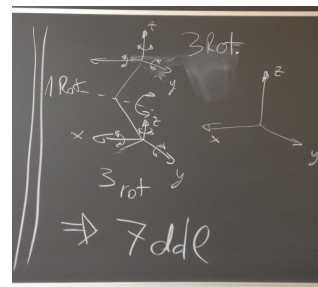 z
3 Rot.
y
y
z
1 Rot
z
x
x
y
y
3 rot
⇒ 7 ddl